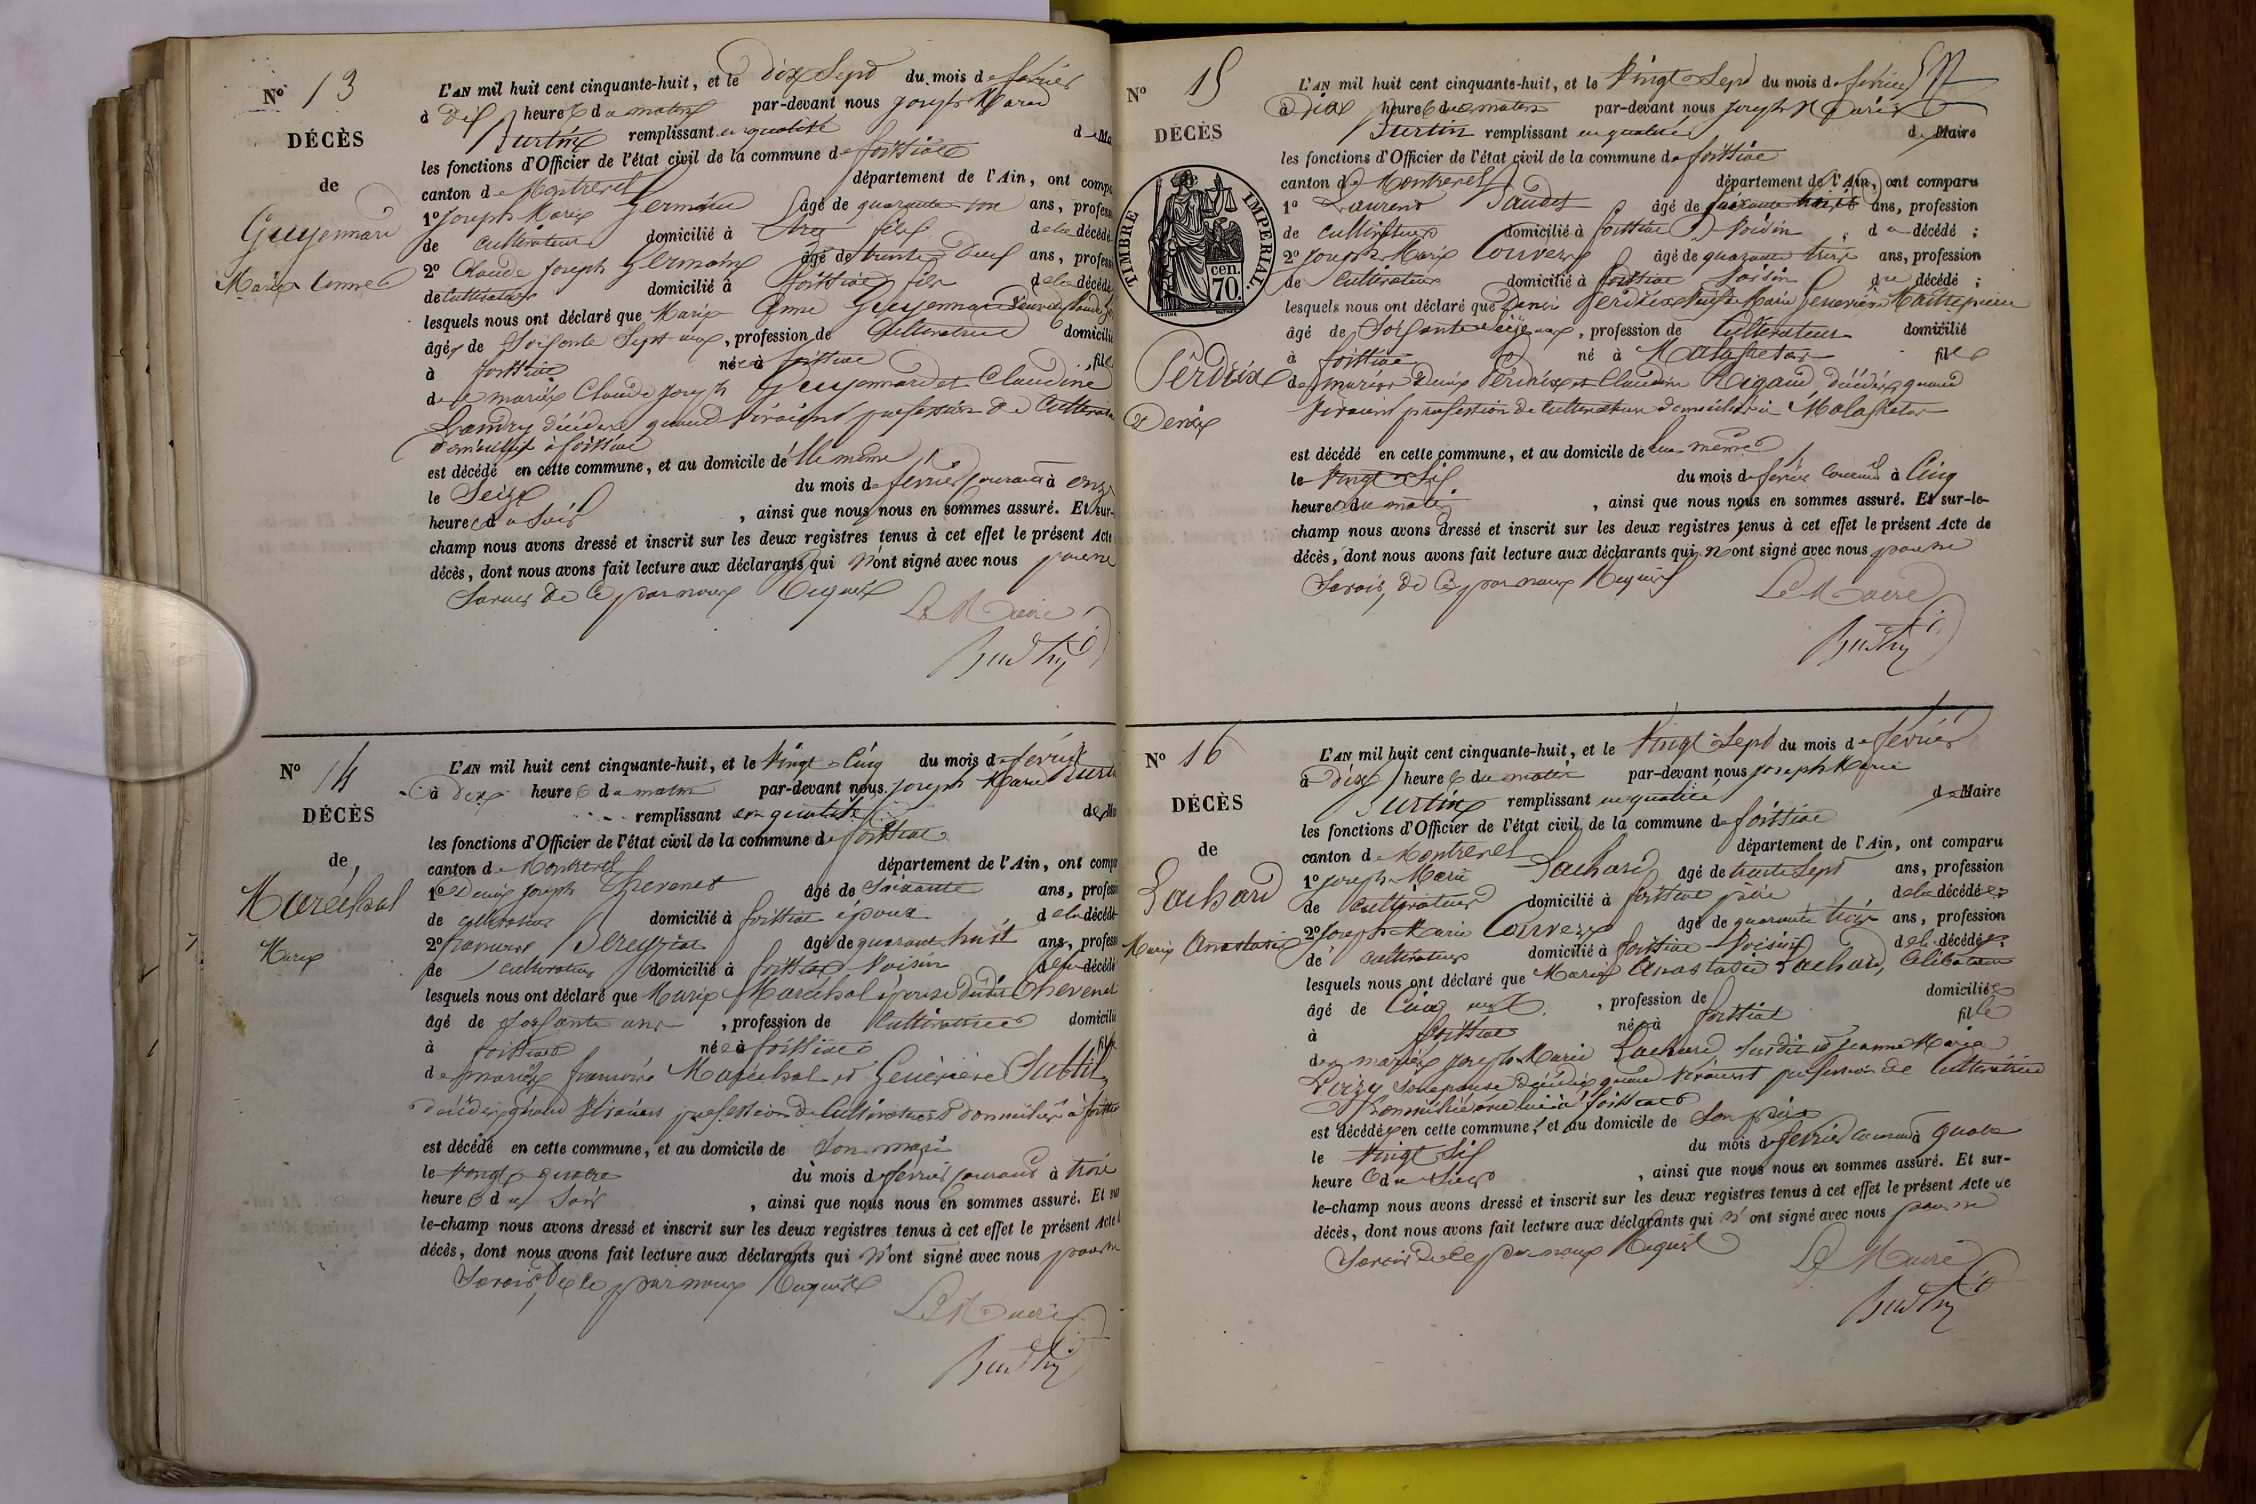 N° 13
DÉCÈS
de
Guyennard
Marie Anne
L'AN mil huit cent cinquante-huit, et le dix Sept du mois de février
à Dix heures du matin par-devant nous Joseph Marie
Burtin remplissant en qualité de Ma
les fonctions d'Officier de l'état civil de la commune de foissiat
canton de Montrevel département de l'Ain, ont compa
1° Joseph Marie Germain âgé de quarante ans, profess
de cultivateur domicilié à fils de la décédé
2° Claude Joseph Germain âgé de trente Deux ans, profess
de Cultivateur domicilié à foissiat fils de la décédé
lesquels nous ont déclaré que Marie Anne Guyennard
âgée de Soixante Sept ans, profession de Cultivatrice domicilié
à foissiat née à foissiat, fille
de mariés Claude Joseph Guyennard et Claudine
Landry décédés quand vivaient profession de Cultivateurs
domiciliés à foissiat
est décédé en cette commune, et au domicile d'Elle même
le Seize du mois de février courant à onze
heures du Soir, ainsi que nous nous en sommes assuré. Et sur-
champ nous avons dressé et inscrit sur les deux registres tenus à cet effet le présent Acte
décès, dont nous avons fait lecture aux déclarants qui n'ont signé avec nous pour ne
Savoir de Ce par nous Requis
Le Maire
Burtin
N° 14
DÉCÈS
de
Maréchal
Marie
L'AN mil huit cent cinquante-huit, et le Vingt Cinq du mois de février
à Dix heures du matin par-devant nous Joseph Marie Burtin
remplissant en qualité de Ma
les fonctions d'Officier de l'état civil de la commune de foissiat
canton de Montrevel département de l'Ain, ont compa
1° Denis Joseph Chevenet âgé de Soixante ans, profess
de cultivateur domicilié à foissiat époux de la décédé
2° françois Bereyziat âgé de quarante huit ans, profess
de cultivateur domicilié à foissiat Voisin de la décédé
lesquels nous ont déclaré que Marie Maréchal épouse dudit Chevenet
âgé de Soixante ans, profession de Cultivatrice domicilié
à foissiat née à foissiat fille
de mariés françois Maréchal et Genevieve Subtil
décédés quand Vivaient profession de Cultivateurs domiciliés à foissiat
est décédé en cette commune, et au domicile de Son mari
le Vingt quatre du mois de février courant à trois
heures du Soir, ainsi que nous nous en sommes assuré. Et sur
le-champ nous avons dressé et inscrit sur les deux registres tenus à cet effet le présent Acte d
décès, dont nous avons fait lecture aux déclarants qui n'ont signé avec nous pour ne
Savoir de Ce par nous Requis
Le Maire
Burtin
N° 15
DÉCÈS
TIMBRE IMPERIAL
70 cen.
Perdrix
Denis
L'AN mil huit cent cinquante-huit, et le Vingt Sept du mois de février
à Dix heures du matin par-devant nous Joseph Marie
Burtin remplissant en qualité de Maire
les fonctions d'Officier de l'état civil de la commune de foissiat
canton de Montrevel département de l'Ain, ont comparu
1° Laurent Paudet âgé de ans, profession
de cultivateur domicilié à foissiat Voisin du décédé ;
2° Joseph Marie Convert âgé de quarante trois ans, profession
de Cultivateur domicilié à foissiat Voisin du décédé ;
lesquels nous ont déclaré que Denis Perdrix Marie Genevieve
âgé de Soixante Seize ans, profession de Cultivateur domicilié
à foissiat né à Malafretaz fils
de mariés Denis Perdrix et Claudine Rigaud décédés quand
Vivaient profession de Cultivateurs domiciliés à Malafretaz
est décédé en cette commune, et au domicile de lui même
le Vingt Six du mois de février courant à Cinq
heures du matin, ainsi que nous nous en sommes assuré. Et sur-le-
champ nous avons dressé et inscrit sur les deux registres tenus à cet effet le présent Acte de
décès, dont nous avons fait lecture aux déclarants qui n'ont signé avec nous pour ne
Savoir, de Ce par nous Requis
Le Maire
Burtin
N° 16
DÉCÈS
de
Pachard
Marie Anastasie
L'AN mil huit cent cinquante-huit, et le Vingt Sept du mois de février
à dix heures du matin par-devant nous Joseph Marie
Burtin remplissant en qualité de Maire
les fonctions d'Officier de l'état civil de la commune de foissiat
canton de Montrevel département de l'Ain, ont comparu
1° Joseph Marie Pachard âgé de trente Sept ans, profession
de cultivateur domicilié à foissiat père de la décédée
2° Joseph Marie Convert âgé de quarante trois ans, profession
de cultivateur domicilié à foissiat Voisin de la décédée
lesquels nous ont déclaré que Marie Anastasie Pachard, Célibataire
âgé de Cinq ans, profession de domiciliée
à foissiat née à foissiat fille
de mariés Joseph Marie Pachard Susdit et Jeanne Marie
Son épouse décédée quand vivait profession de Cultivatrice
domiciliée avec lui à foissiat
est décédée en cette commune, et au domicile de Son père
le Vingt Six du mois de février courant à quatre
heures du Soir, ainsi que nous nous en sommes assuré. Et sur-
le-champ nous avons dressé et inscrit sur les deux registres tenus à cet effet le présent Acte de
décès, dont nous avons fait lecture aux déclarants qui n'ont signé avec nous pour ne
Savoir de Ce par nous Requis
Le Maire
Burtin